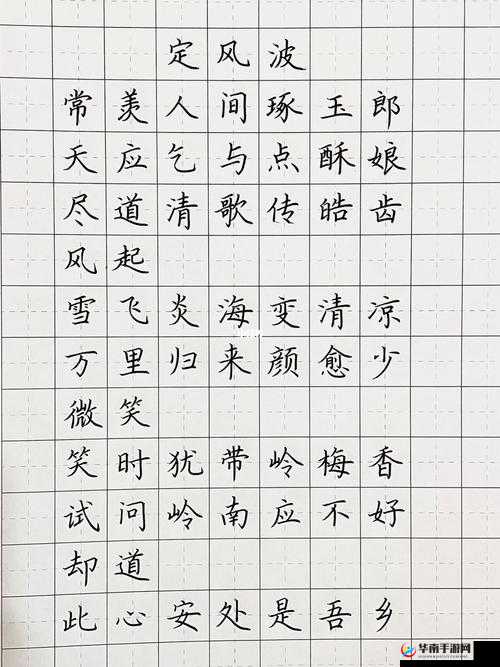 定风波
常羡人间琢玉郎
天应乞与点酥娘
尽道清歌传皓齿
风起
雪飞炎海变清凉
万里归来颜愈少
微笑
笑时犹带岭梅香
试问岭南应不好
却道
此心安处是吾乡
华南手游网